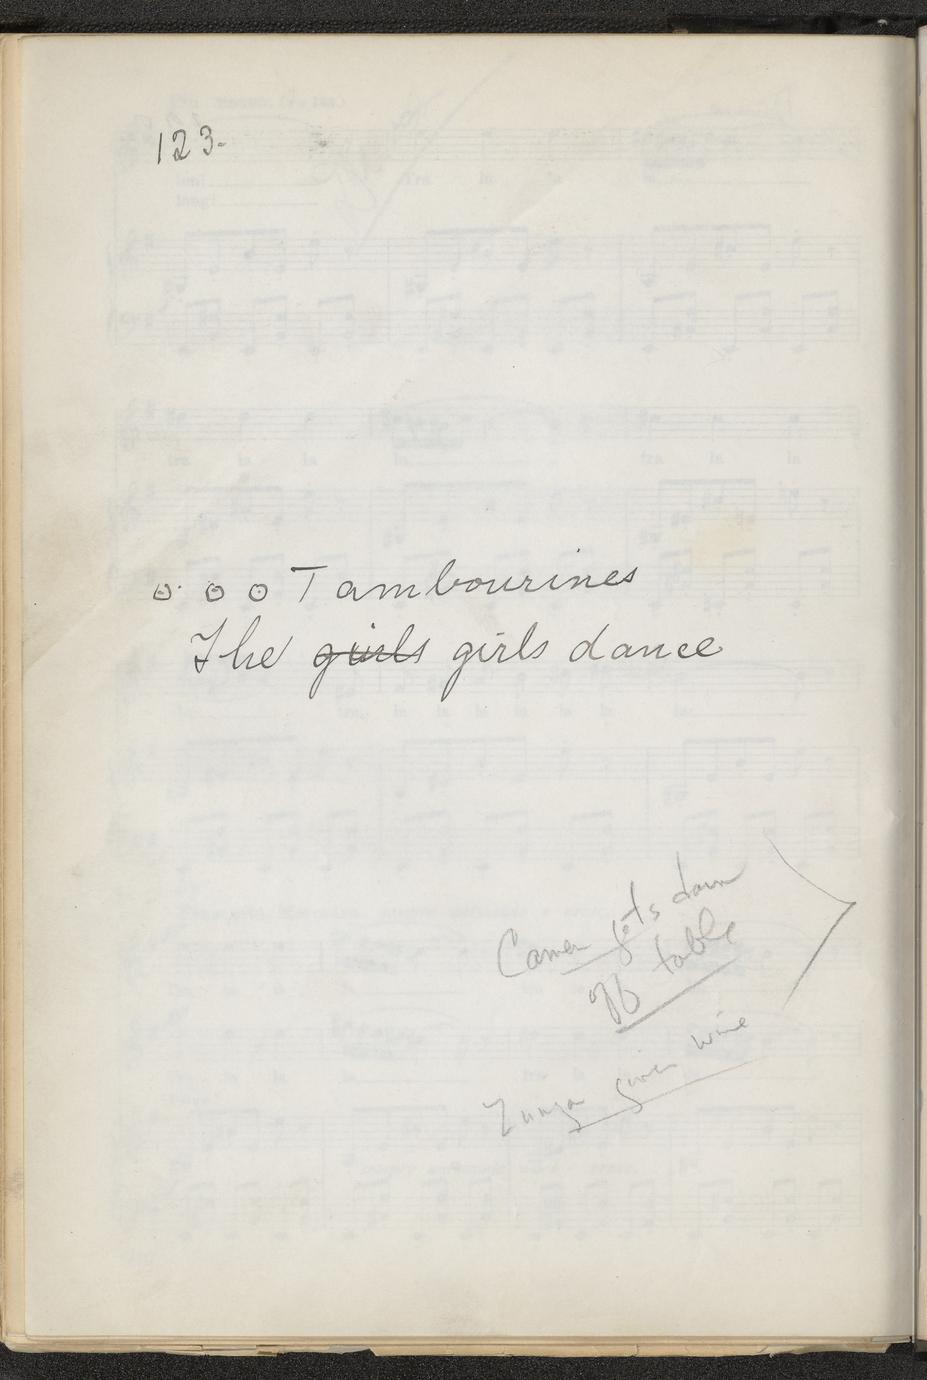 123-
o o o Tambourines
The girls girls dance
Carmen gets down
off table
Zuniga given wine